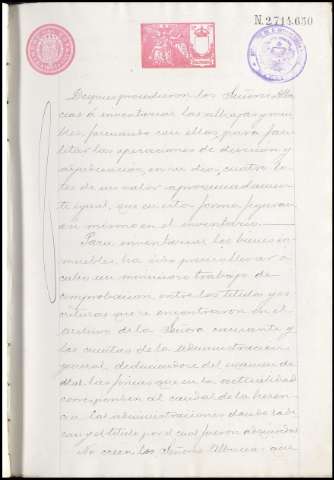 N. 2.714.650
Despues procedieron los Señores Alba
ceas á inventariar las alhajas y mue
bles, formando con ellos para faci
litar las operaciones de division y
adjudicacion, en su dia, cuatro lo
tes de un valor aproximadamen
te igual, que en esta forma figuran
en mismo en el inventario.
Para inventariar los bienes in
muebles, ha sido preciso llevar a
cabo un minucioso trabajo de
comprobacion entre los titulos y es
crituras que se encontraron en el
archivo de la Señora causante y
las cuentas de la administracion
general, deduciendose del examen de
ellas las fincas que en la actualidad
corresponden al caudal de la heren
cia las administraciones donde radi
can y el titulo por el cual fueron adquiridas
No creen los Señores Albaceas que